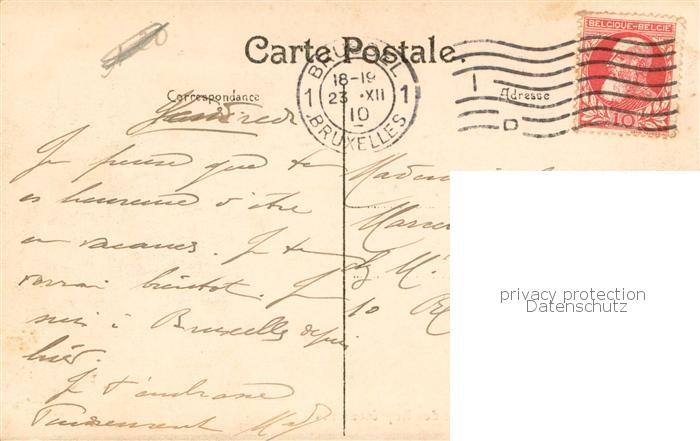 Carte Postale.
BELGIQUE-BELGIË
10
BRUXEL
18-19
1 23 XII 1
10
BRUSSEL
Correspondance
Adresse
Vendredi
Je pense que tu
es heureuse d'être
en vacances. Je te
verrai bientôt. Je
suis à Bruxelles depuis
hier.
Je t'embrasse
Tendrement
Marce
chez M.
10
privacy protection
Datenschutz